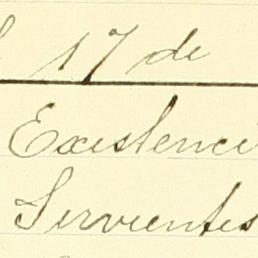 l 17 de
Existenci
Sirvientes